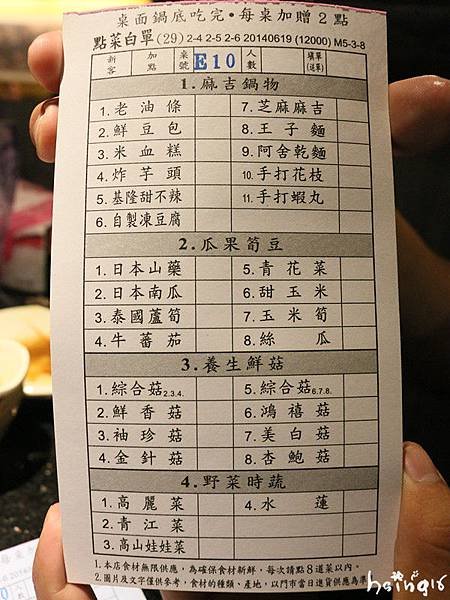 桌面鍋底吃完·每桌加贈2點
點菜白單(29) 2-4 2-5 2-6 20140619 (12000) M5-3-8
新客 加點 桌號 E10 人數 填單(送單)
1.麻吉鍋物
1.老油條 7.芝麻麻吉
2.鮮豆包 8.王子麵
3.米血糕 9.阿舍乾麵
4.炸芋頭 10.手打花枝
5.基隆甜不辣 11.手打蝦丸
6.自製凍豆腐
2.瓜果筍豆
1.日本山藥 5.青花菜
2.日本南瓜 6.甜玉米
3.泰國蘆筍 7.玉米筍
4.牛蕃茄 8.絲瓜
3.養生鮮菇
1.綜合菇2.3.4. 5.綜合菇6.7.8.
2.鮮香菇 6.鴻禧菇
3.袖珍菇 7.美白菇
4.金針菇 8.杏鮑菇
4.野菜時蔬
1.高麗菜 4.水蓮
2.青江菜
3.高山娃娃菜
1.本店食材無限供應，為確保食材新鮮，每次請點8道菜以內。
2.圖片及文字僅供參考，食材的種類、產地，以門市當日進貨供應為準
hsing16